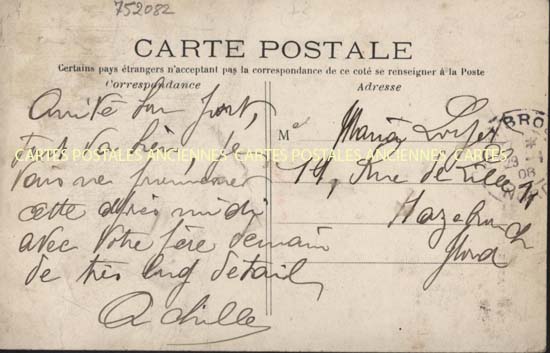 752082
CARTE POSTALE
Certains pays étrangers n'acceptant pas la correspondance de ce coté se renseigner à la Poste
Correspondance
Adresse
Arrivé bon port,
tout va bien, je
vais me promener
cette après midi
avec votre père demain
de très long détail
Achille
M
Maria
19, Rue de Lille 71
Hazebrouck
Nord
BRO
08
CARTES POSTALES ANCIENNES CARTES POSTALES ANCIENNES CARTES